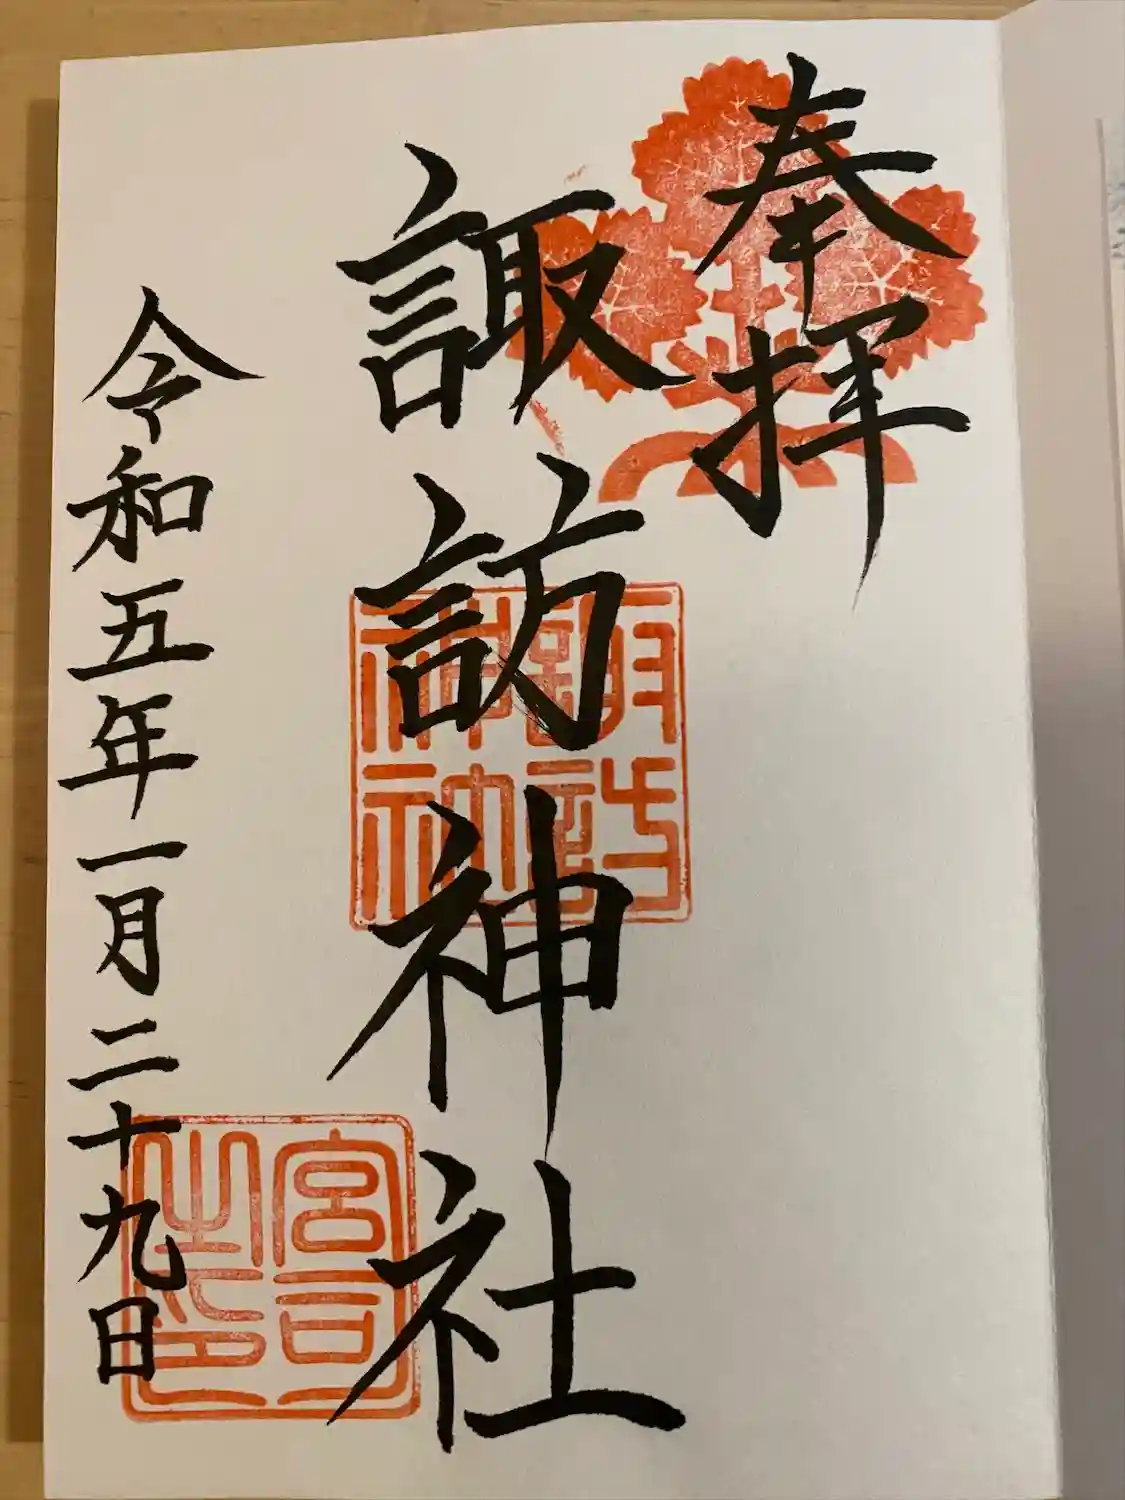 奉拝
諏訪神社
令和五年一月二十九日
宮司
之印